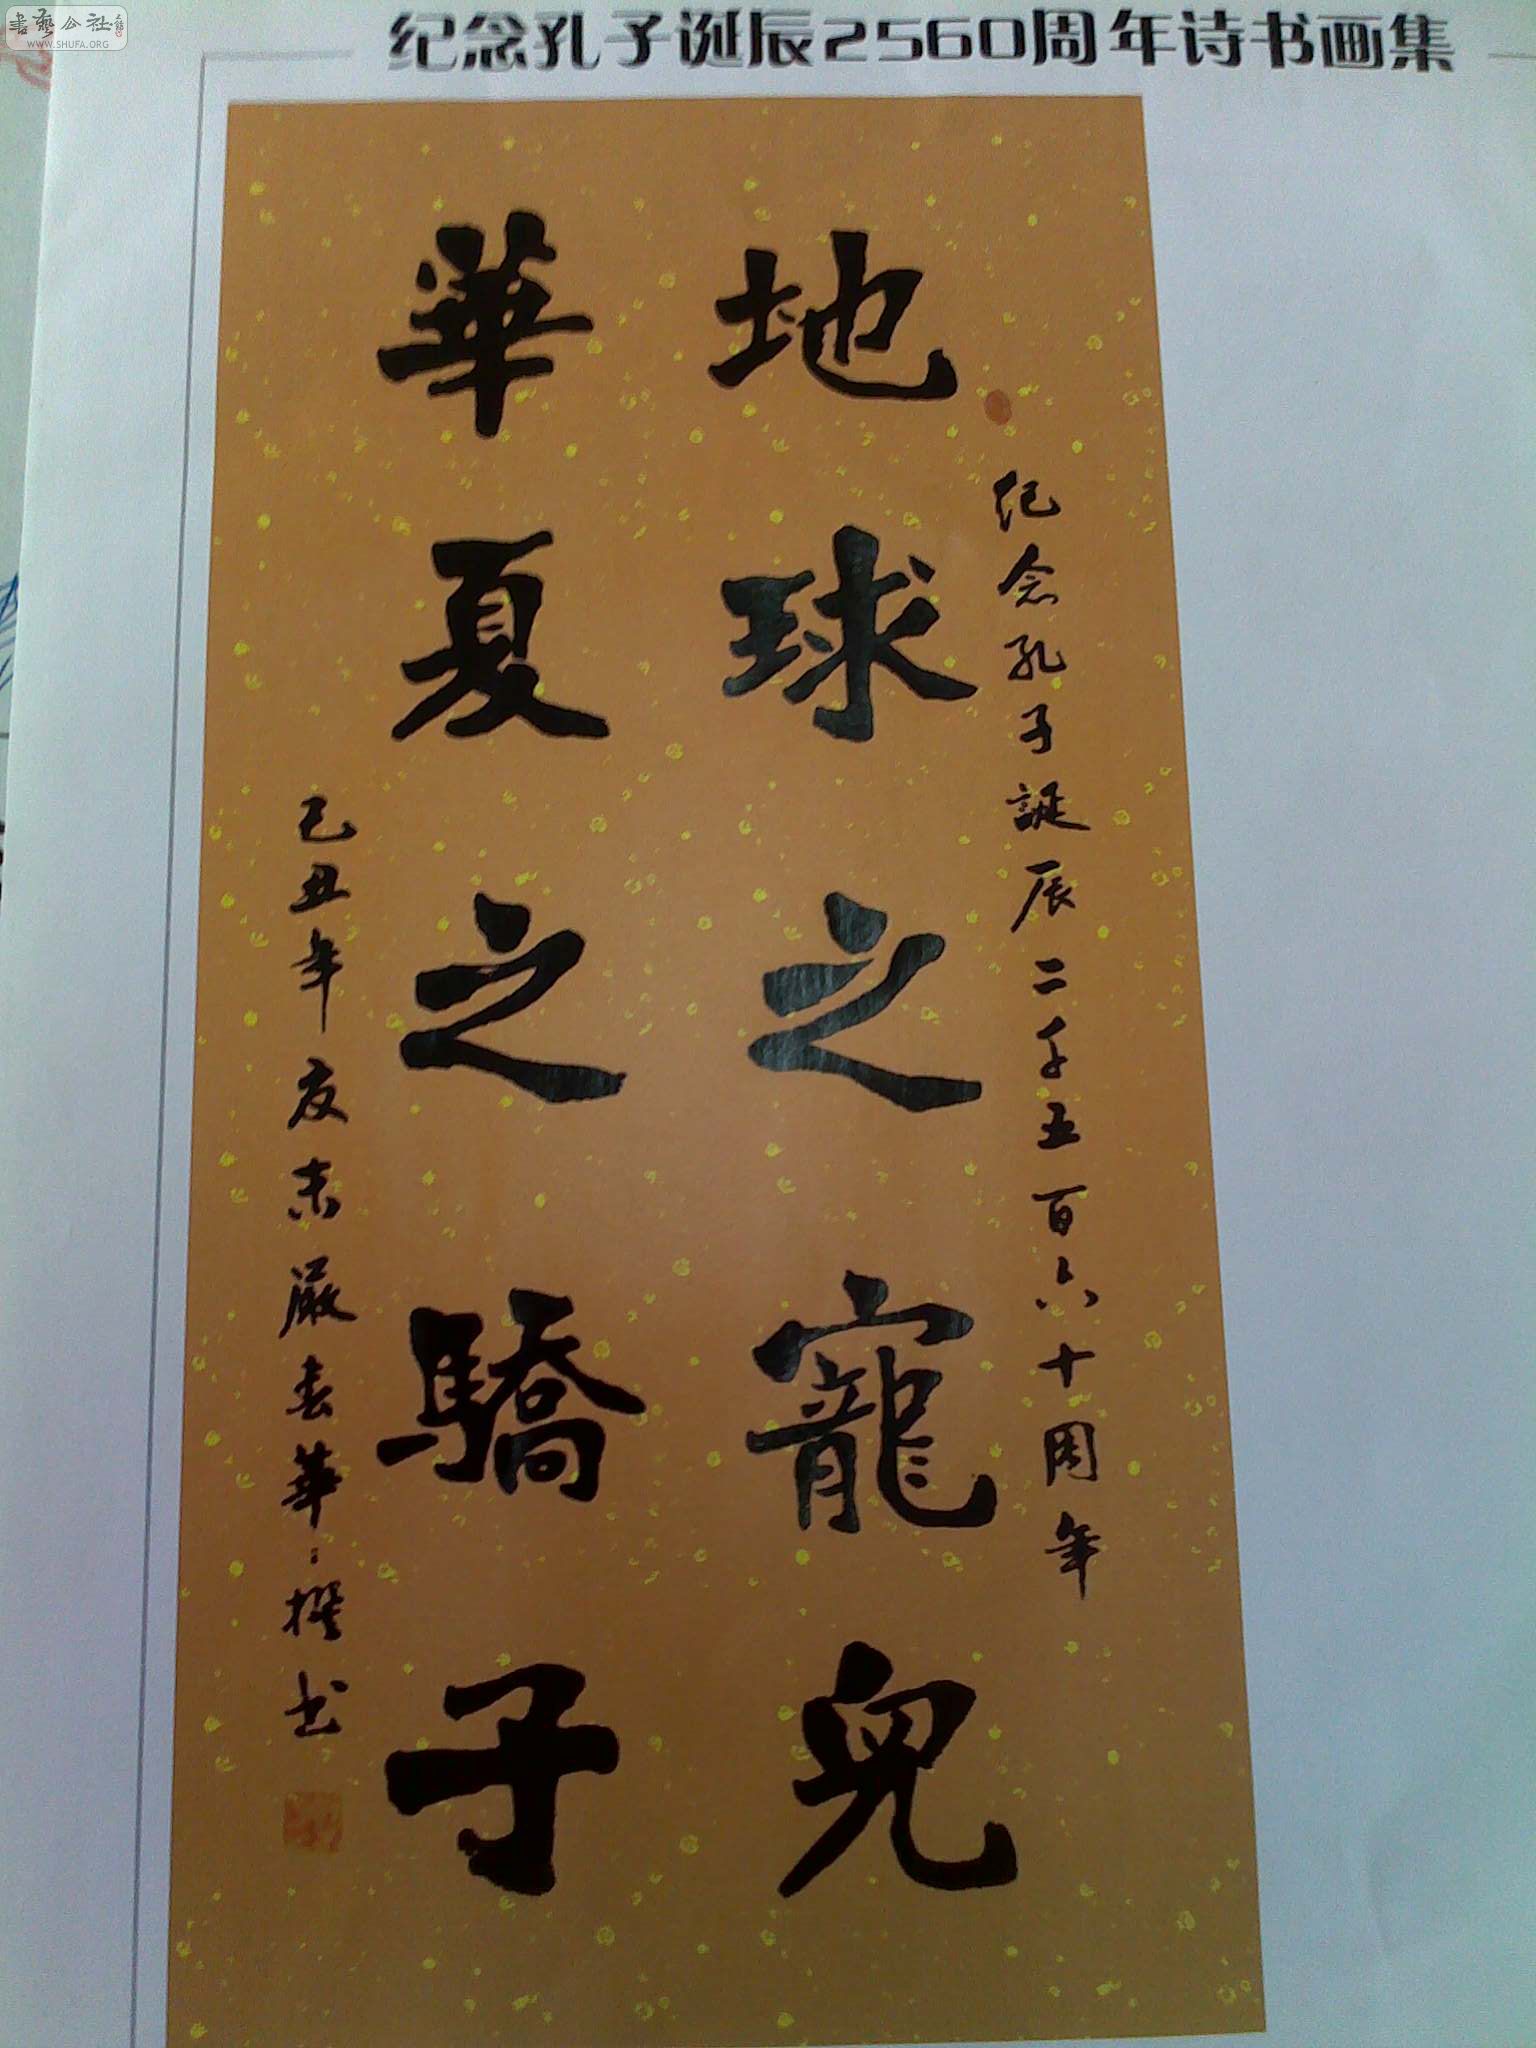 書藝公社
WWW.SHUFA.ORG
纪念孔子诞辰2560周年诗书画集
纪念孔子誕辰二千五百六十周年
地球之寵兒
華夏之驕子
己丑年友末嚴春華撰书